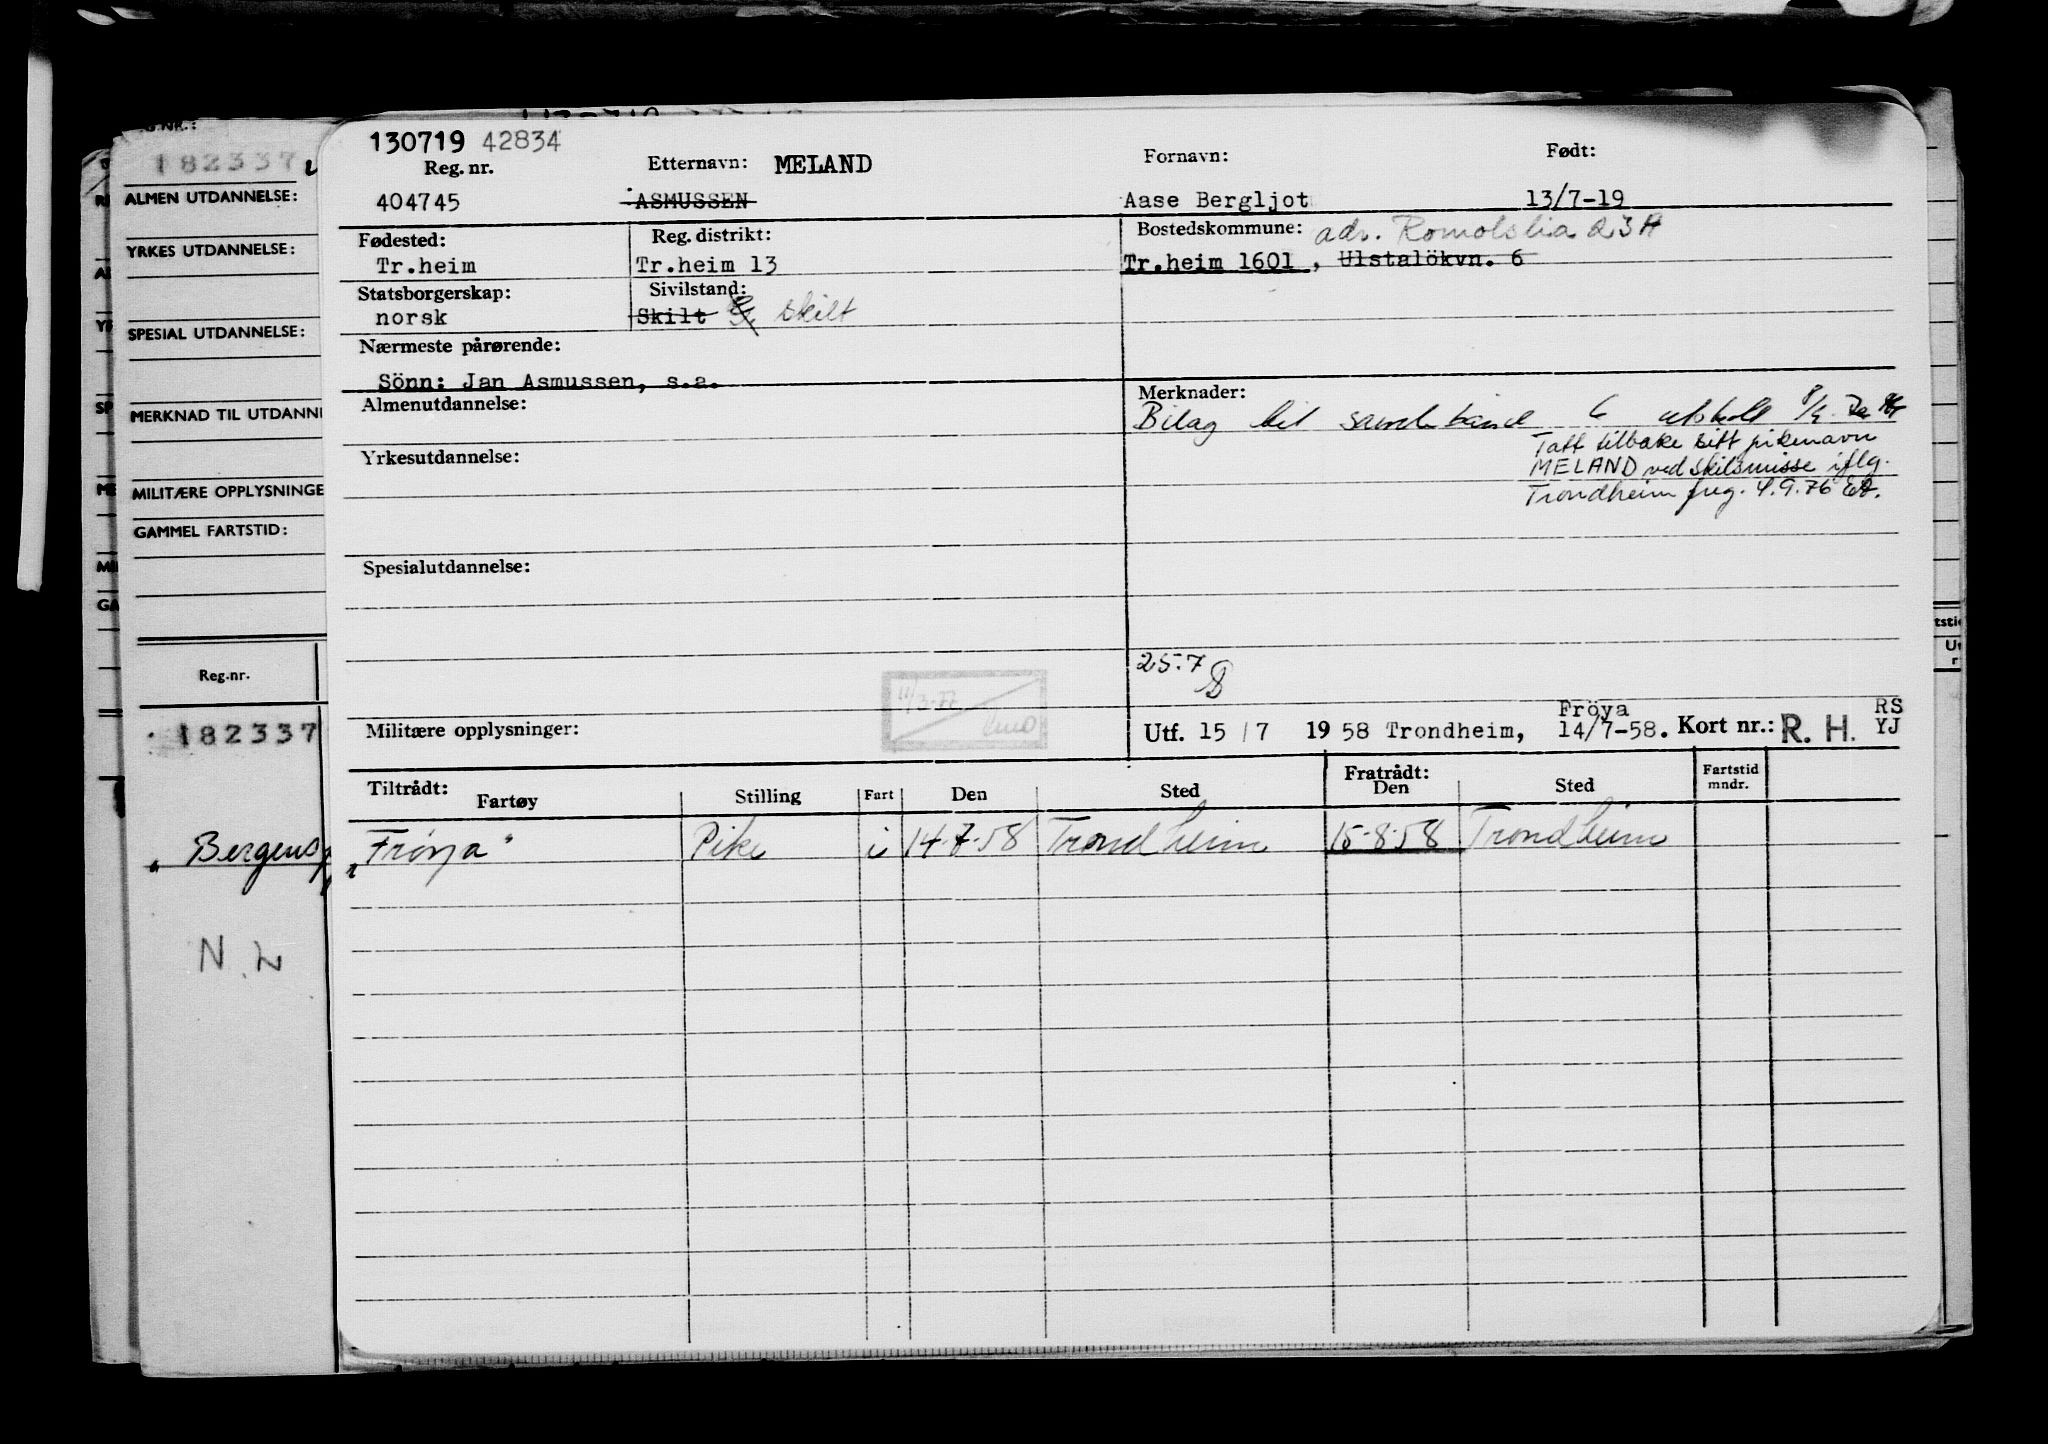 130719 42834
Reg. nr.
Etternavn: MELAND
Fornavn:
Født:
404745
ASMUSSEN
Aase Bergljot
13/7-19
Fødested:
Tr.heim
Reg. distrikt:
Tr.heim 13
Bostedskommune: adr. Romolslia 23A
Tr.heim 1601, Ulstalökvn. 6
Statsborgerskap:
norsk
Sivilstand:
Skilt skilt
Nærmeste pårørende:
Sönn: Jan Asmussen, s.a.
Almenutdannelse:
Merknader:
Bilag til
Tatt tilbake sitt pikenavn
MELAND ved skilsmisse iflg.
Trondheim freg. 4.9.76
Yrkesutdannelse:
Spesialutdannelse:
25.7
11/3-77
Militære opplysninger:
Utf. 15/7 1958 Trondheim,
Fröya
14/7-58.
Kort nr.: R. H.
RS
YJ
Tiltrådt:
Fartøy
Stilling
Fart
Den
Sted
Fratrådt:
Den
Sted
Fartstid
mndr.
"Fröya"
Pike
i
14-7-58
Trondheim
15-8-58
Trondheim
G.NR.:
182337
ALMEN UTDANNELSE:
YRKES UTDANNELSE:
SPESIAL UTDANNELSE:
MERKNAD TIL UTDANN
MILITÆRE OPPLYSNINGE
GAMMEL FARTSTID:
Reg.nr.
182337
"Bergens
N.L